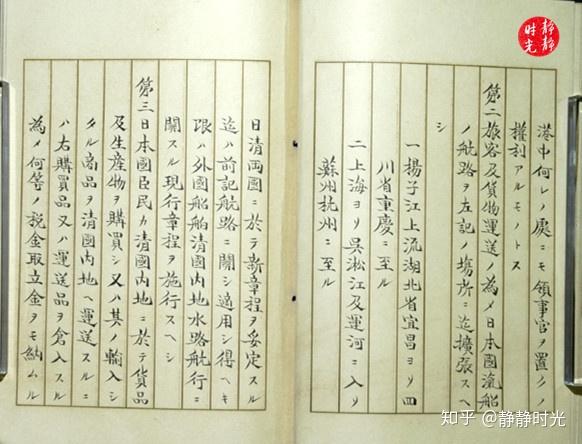 港中何レノ處ニモ領事官ヲ置クノ
權利アルモノトス
第二旅客及貨物運送ノ為メ日本國汽船
ノ航路ヲ左記ノ塲所ニ迄擴張スヘ
シ
一揚子江上流湖北省宜昌ヨリ四
川省重慶ニ至ル
二上海ヨリ吳淞江及運河ニ入リ
蘇州杭州ニ至ル
日清両國ニ於テ新章程ヲ妥定スル
迄ハ前記航路ニ關シ適用シ得ヘキ
限ハ外國船舶清國内地水路航行ニ
關スル現行章程ヲ施行スヘシ
第三日本國臣民カ清國内地ニ於テ貨品
及生産物ヲ購買シ又ハ其ノ輸入シ
タル商品ヲ清國内地ヘ運送スルニ
ハ右購買品又ハ運送品ヲ倉入スル
為メ何等ノ税金取立金ヲモ納ムル
静静时光
知乎 @静静时光